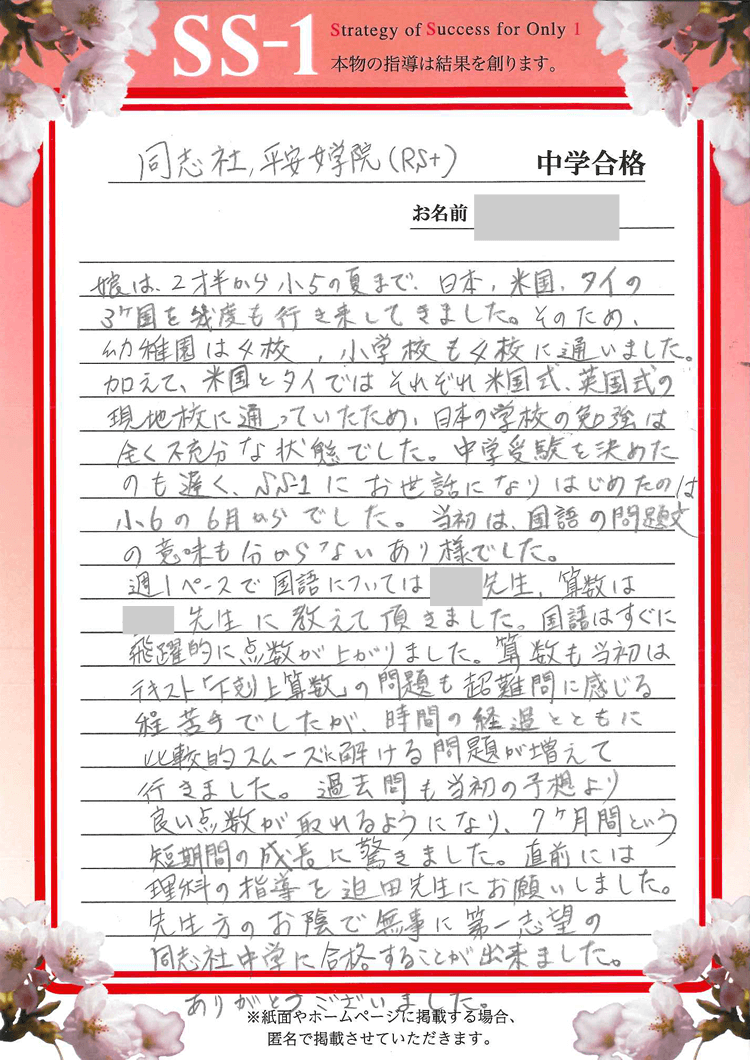 SS-1
Strategy of Success for Only 1
本物の指導は結果を創ります。
同志社, 平安女学院(RS+) 中学合格
お名前
娘は、2才半から小5の夏まで、日本，米国，タイの
3ケ国を幾度も行き来してきました。そのため、
幼稚園は4校，小学校も4校に通いました。
加えて、米国とタイではそれぞれ米国式、英国式の
現地校に通っていたため、日本の学校の勉強は
全く不充分な状態でした。中学受験を決めた
のも遅く、SS-1にお世話になりはじめたのは
小6の6月からでした。当初は、国語の問題文
の意味も分からないあり様でした。
週1ペースで国語については 先生，算数は
先生に教えて頂きました。国語はすぐに
飛躍的に点数が上がりました。算数も当初は
テキスト「下剋上算数」の問題も超難問に感じる
程苦手でしたが、時間の経過とともに
比較的スムーズに解ける問題が増えて
行きました。過去問も当初の予想より
良い点数が取れるようになり、7ケ月間という
短期間の成長に驚きました。直前には
理科の指導を迫田先生にお願いしました。
先生方のお陰で無事に第一志望の
同志社中学に合格することが出来ました。
ありがとうございました。
※紙面やホームページに掲載する場合、
匿名で掲載させていただきます。